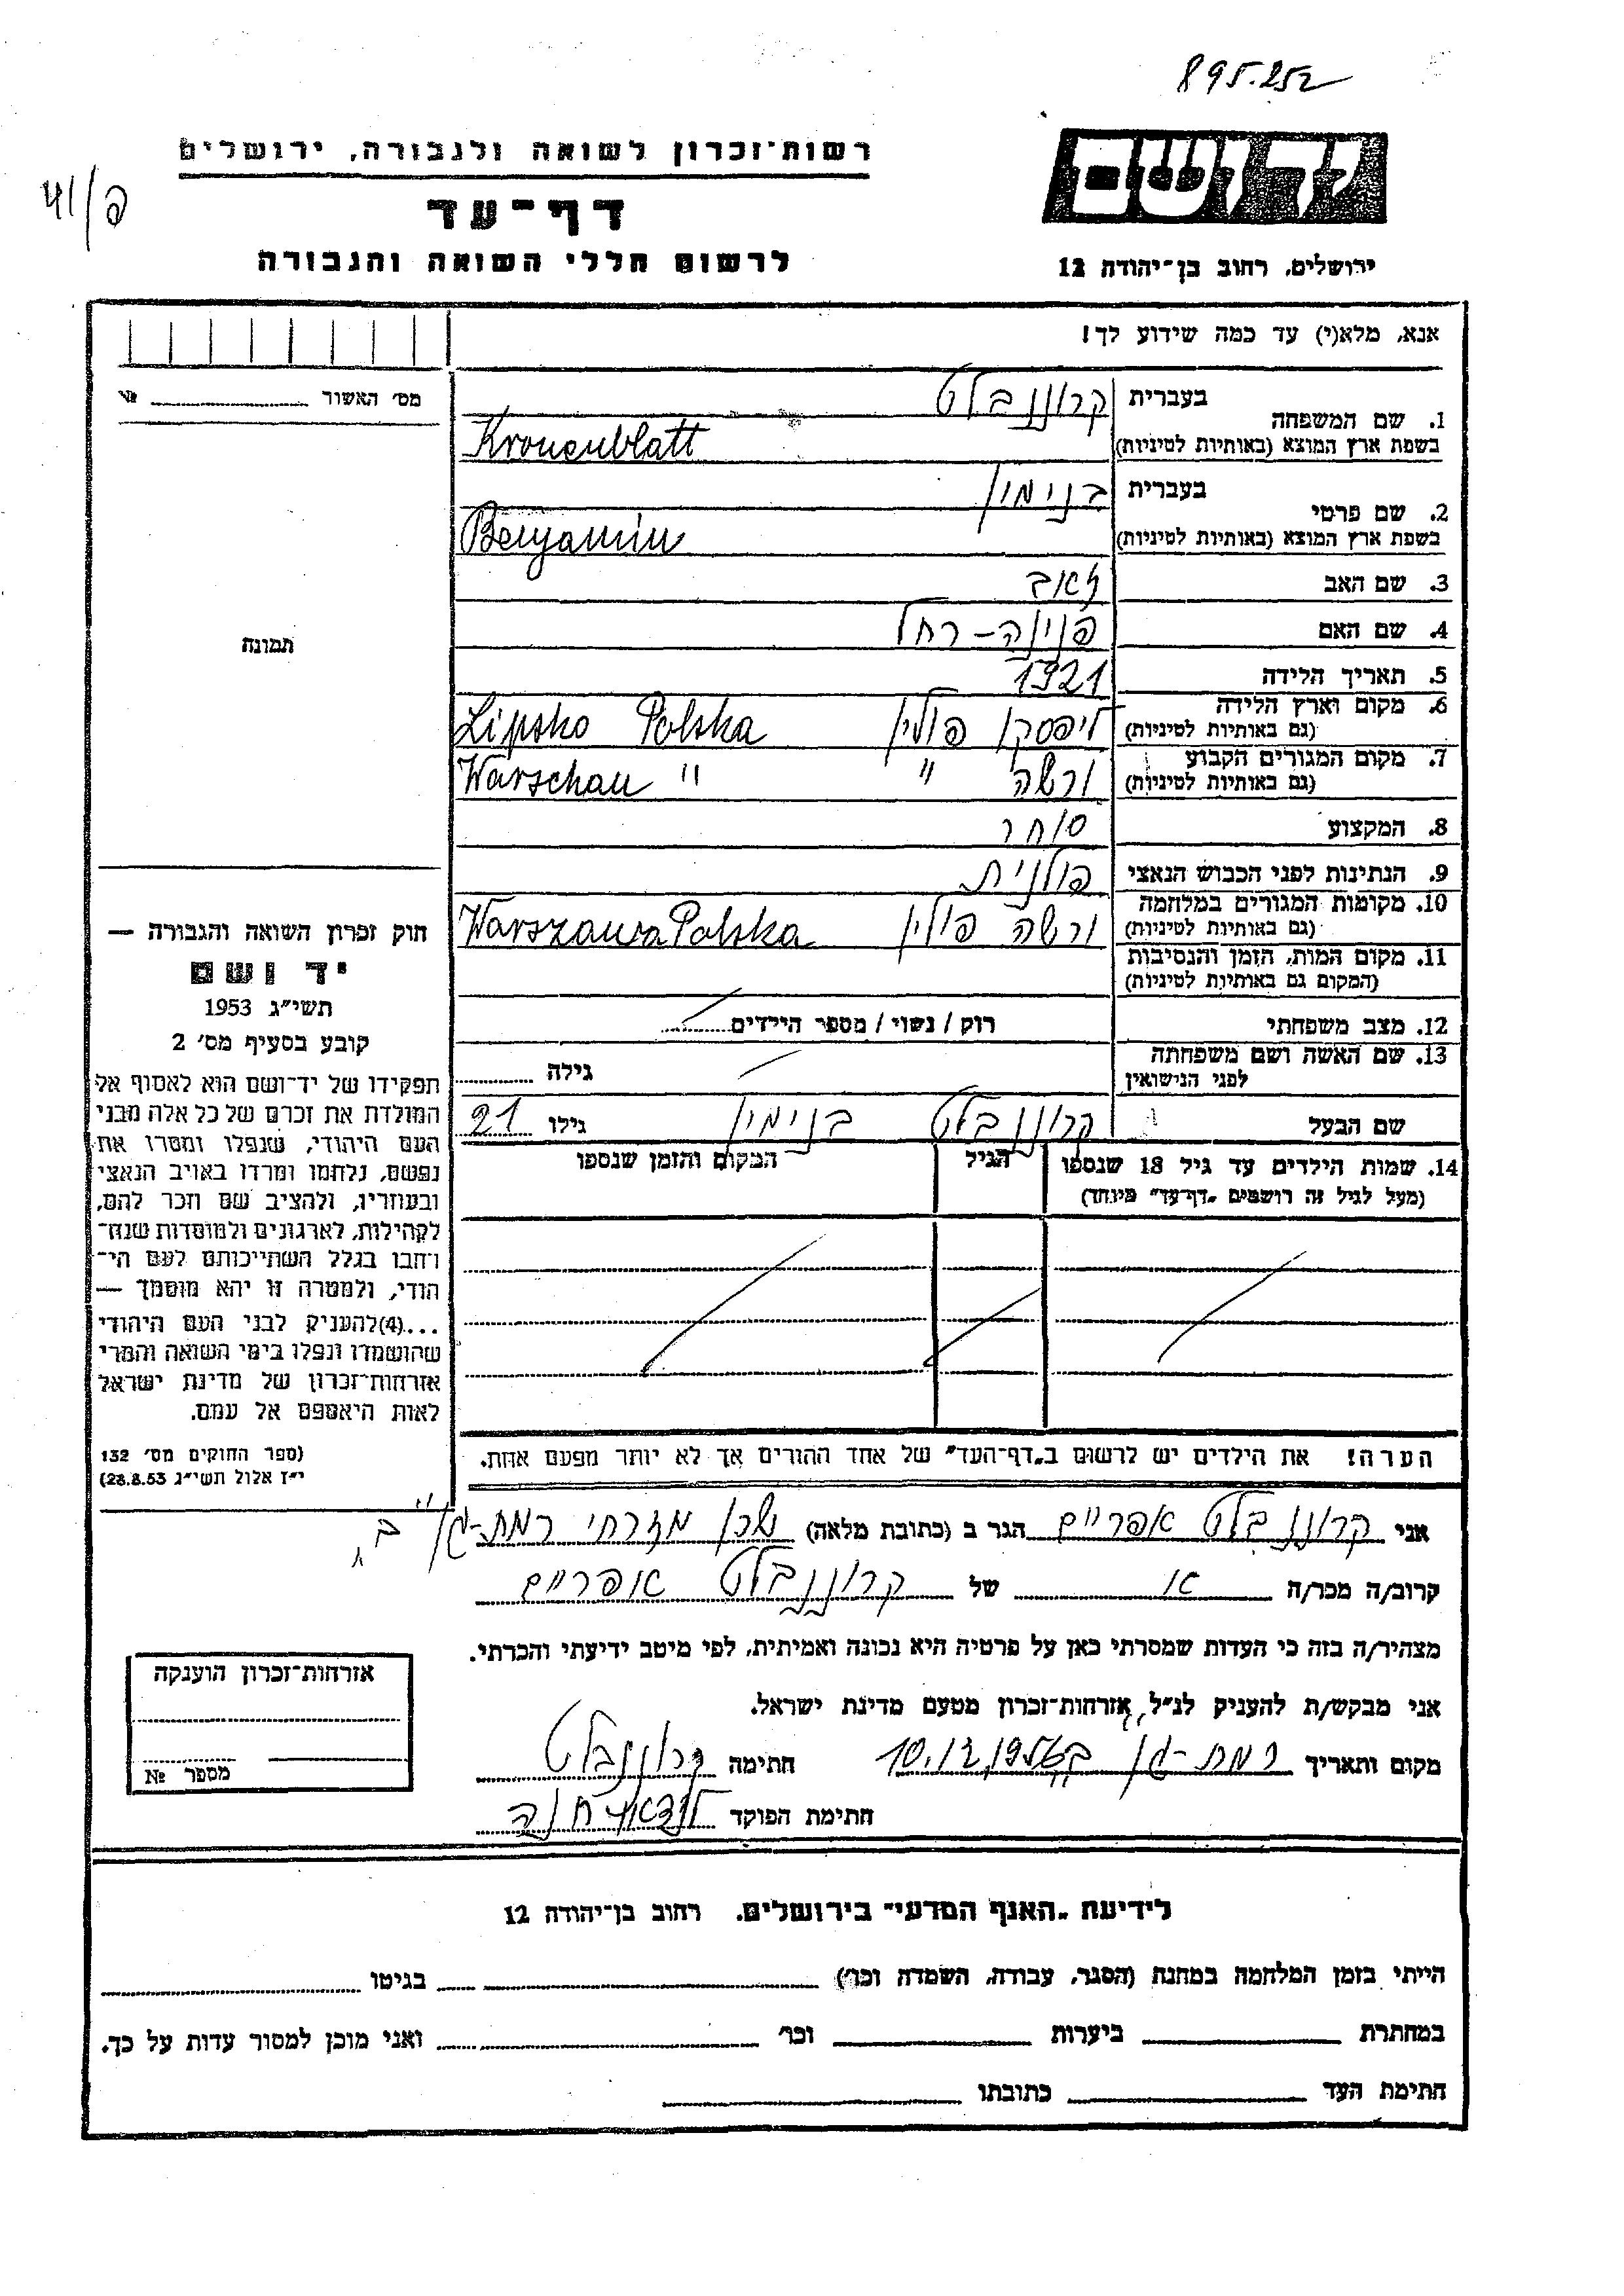 895.252
רשות־זכרון לשואה ולגבורה, ירושלים
פ/41
דף־עד
לרשום חללי השואה והגבורה
יד ושם
ירושלים, רחוב בן־יהודה 12
אנא, מלא(י) עד כמה שידוע לך!
מס׳ האשור № ........
1. שם המשפחה בעברית קרוננבלט
בשפת ארץ המוצא (באותיות לטיניות) Kronenblatt
2. שם פרטי בעברית בנימין
בשפת ארץ המוצא (באותיות לטיניות) Benjamin
3. שם האב זאב
4. שם האם פנינה - רחל
5. תאריך הלידה 1921
6. מקום וארץ הלידה (גם באותיות לטיניות) ליפסקו פולין Lipsko Polska
7. מקום המגורים הקבוע (גם באותיות לטיניות) ורשה " Warschau "
8. המקצוע סוחר
9. הנתינות לפני הכבוש הנאצי פולנית
10. מקומות המגורים במלחמה (גם באותיות לטיניות) ורשה פולין Warszawa Polska
11. מקום המות, הזמן והנסיבות (המקום גם באותיות לטיניות)
12. מצב משפחתי רוק / נשוי / מספר הילדים
13. שם האשה ושם משפחתה לפני הנישואין גילה
שם הבעל קרוננבלט בנימין גילו 21
14. שמות הילדים עד גיל 18 שנספו הגיל המקום והזמן שנספו
(מעל לגיל זה רושמים „דף־עד״ מיוחד)
הערה! את הילדים יש לרשום ב„דף־העד״ של אחד ההורים אך לא יותר מפעם אחת.
תמונה
חוק זכרון השואה והגבורה —
יד ושם
תשי״ג 1953
קובע בסעיף מס׳ 2
תפקידו של יד־ושם הוא לאסוף אל
המולדת את זכרם של כל אלה מבני
העם היהודי, שנפלו ומסרו את
נפשם, נלחמו ומרדו באויב הנאצי
ובעוזריו, ולהציב שם וזכר להם,
לקהילות, לארגונים ולמוסדות שנח־
רבו בגלל השתייכותם לעם הי־
הודי, ולמטרה זו יהא מוסמך —
...(4)להעניק לבני העם היהודי
שהושמדו ונפלו בימי השואה והמרי
אזרחות־זכרון של מדינת ישראל
לאות היאספם אל עמם.
(ספר החוקים מס׳ 132
י״ז אלול תשי״ג 28.8.53)
אני קרוננבלט אפרים הגר ב (כתובת מלאה) שכון מזרחי רמת-גן ב'
קרוב/ה מכר/ה אח של קרוננבלט אפרים
מצהיר/ה בזה כי העדות שמסרתי כאן על פרטיה היא נכונה ואמיתית, לפי מיטב ידיעתי והכרתי.
אני מבקש/ת להעניק לנ״ל אזרחות־זכרון מטעם מדינת ישראל.
מקום ותאריך רמת-גן חתימה קרוננבלט
חתימת הפוקד חנה
אזרחות־זכרון הוענקה
מספר №
לידיעת „האגף המדעי״ בירושלים, רחוב בן־יהודה 12
הייתי בזמן המלחמה במחנה (הסגר, עבודה, השמדה וכו׳) בגיטו
במחתרת ביערות וכו׳ ואני מוכן למסור עדות על כך.
חתימת העד כתובתו